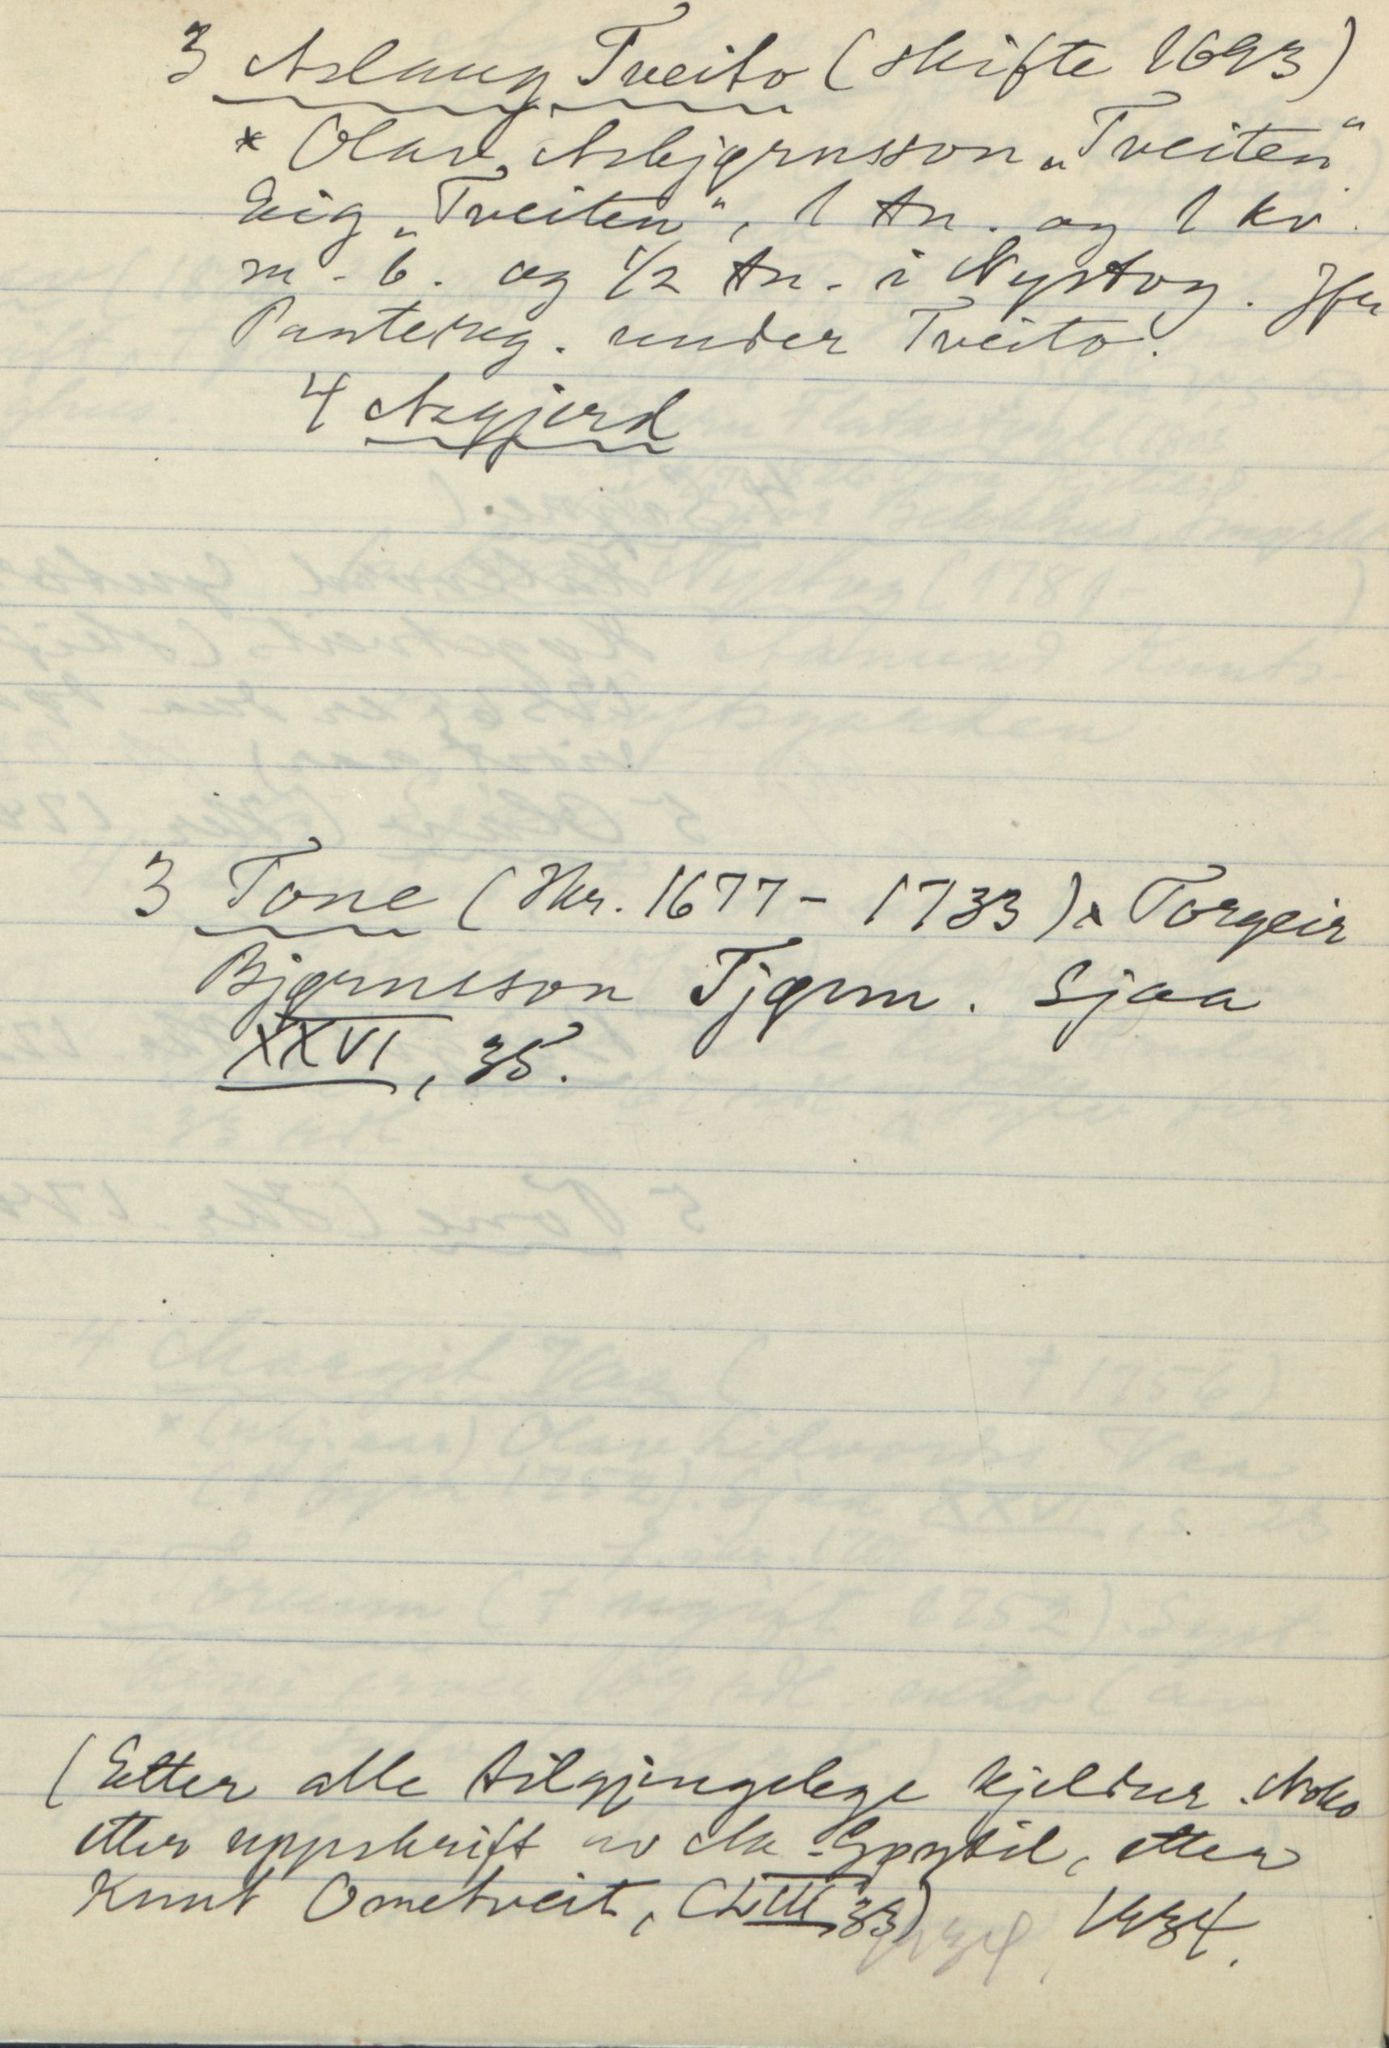 3 Aslaug Tveito (skifte 1693)
x Olav Asbjørnsson „Tveiten"
Eig „Tveiten", 1 tn. og 1 kv.
m. b. og 1/2 tn. i Nystog. Jfr
Pantereg. under Tveito.
4 Asgjerd
3 Tone (Kr. 1677 - 1733) x Torgeir
Bjørnsson Tjønn. Sjaa
XXVI, 35.
(Etter alle tilgjengelege kjeldur. Noko
etter uppskrift av
Knut Ometveit, CLIII 33) 1934.